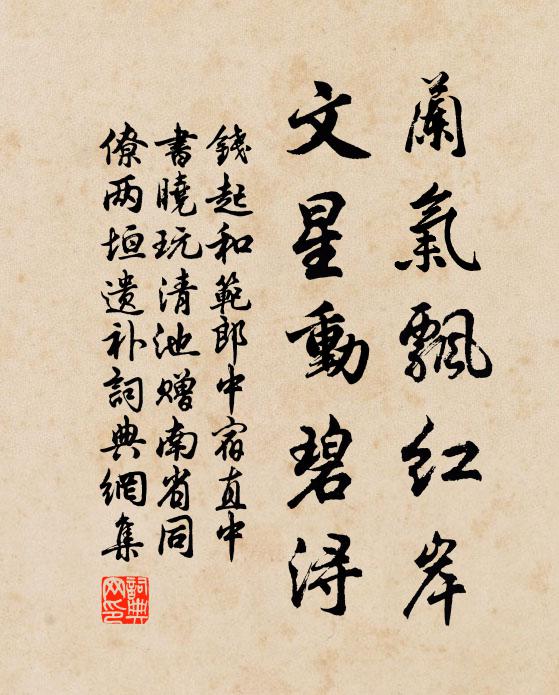 蘭氣飄紅岸
文星動碧浔
錢起和範郎中宿直中
書曉玩清池贈南省同
僚两垣遗补詞典網集
詞典網印